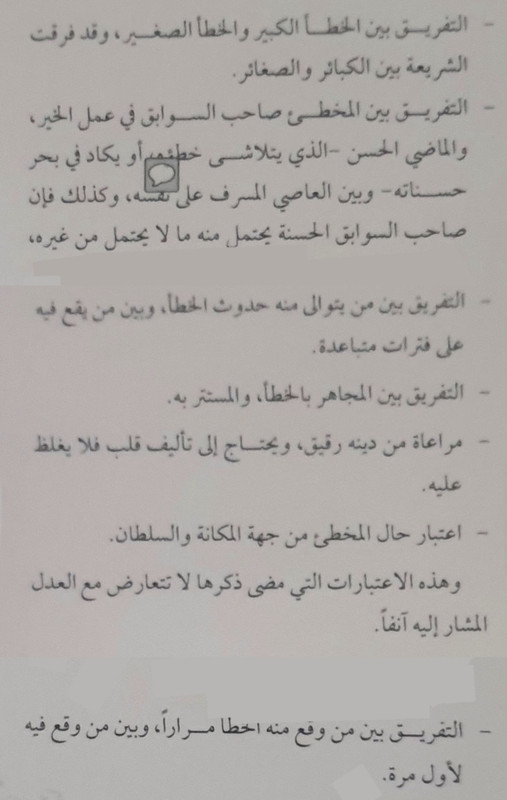 - التفريق بين الخطأ الكبير والخطأ الصغير، وقد فرقت
الشريعة بين الكبائر والصغائر.
- التفريق بين المخطئ صاحب السوابق في عمل الخير،
والماضي الحسن -الذي يتلاشى خطؤه أو يكاد في بحر
حسناته- وبين العاصي المسرف على نفسه، وكذلك فإن
صاحب السوابق الحسنة يحتمل منه ما لا يحتمل من غيره،
- التفريق بين من يتوالى منه حدوث الخطأ، وبين من يقع فيه
على فترات متباعدة.
- التفريق بين المجاهر بالخطأ، والمستتر به.
- مراعاة من دينه رقيق، ويحتاج إلى تأليف قلب فلا يغلظ
عليه.
- اعتبار حال المخطئ من جهة المكانة والسلطان.
وهذه الاعتبارات التي مضى ذكرها لا تتعارض مع العدل
المشار إليه آنفاً.
- التفريق بين من وقع منه الخطأ مراراً، وبين من وقع فيه
لأول مرة.